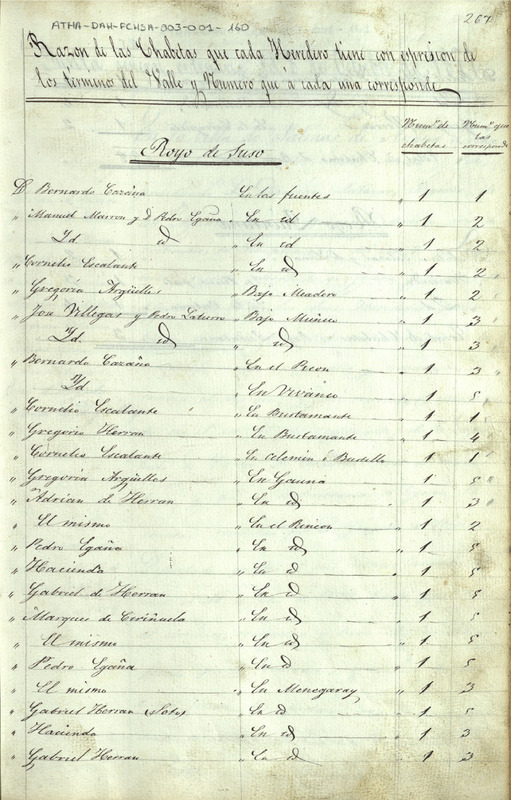 ATHA-DAH-FCHSA-003-001-160
267
Razon de las Chabetas que cada Heredero tiene con espresion de
los términos del Valle y Numero que á cada una corresponde
Numº de chabetas Numº que las corresponde
Royo de Suso
D. Bernardo Cazaña En las fuentes 1 1
" Manuel Marron y D. Pedro Egaña " En id " 1 2
" Yd id " En id " 1 2
" Cornelio Escalante " En id " 1 2
" Gregoria Argüelles " Bajo Meadero " 1 2
" Jose Villegas y Pedro Laturre " Bajo " 1 3
" Yd. id " id " 1 3
" Bernardo Cazaña " En el Picon " 1 3
" Yd " En Vivanco " 1 5
" Cornelio Escalante " En Bustamante " 1 1
" Gregorio Herran " En Bustamante " 1 4
" Cornelio Escalante " En Celemin ó Budillo " 1 1
" Gregoria Argüelles " En Gauna " 1 5
" Adrian de Herran " En id " 1 3
" El mismo " En el Rincon " 1 2
" Pedro Egaña " En id " 1 5
" Hacienda " En id " 1 5
" Gabriel de Herran " En id " 1 5
" Marques de Ciriñuela " En id " 1 5
" El mismo " En id " 1 5
" Pedro Egaña " En id " 1 5
" El mismo " En Menegaray " 1 3
" Gabriel Herran Sotos " En id " 1 5
" Hacienda " En id " 1 3
" Gabriel Herran " En id " 1 3